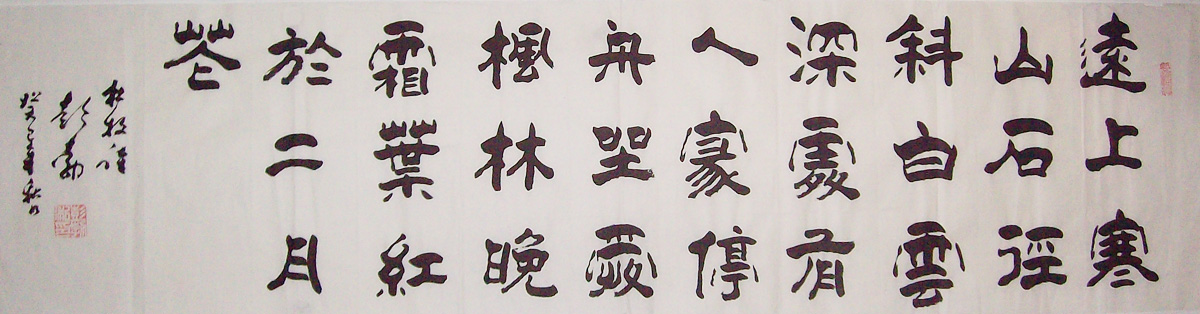 遠上寒
山石徑
斜白雲
深處有
人家停
舟坐愛
楓林晚
霜葉紅
於二月
花
杜牧詩
彭
癸巳年秋月